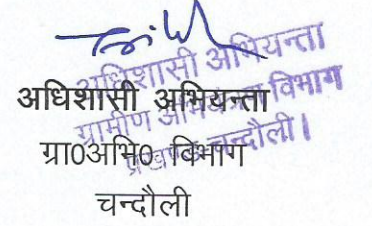 अधिशासी अभियन्ता
ग्रामीण अभियन्त्रण विभाग
प्रखण्ड-चन्दौली।
अधिशासी अभियन्ता
ग्रा0अभि0 विभाग
चन्दौली